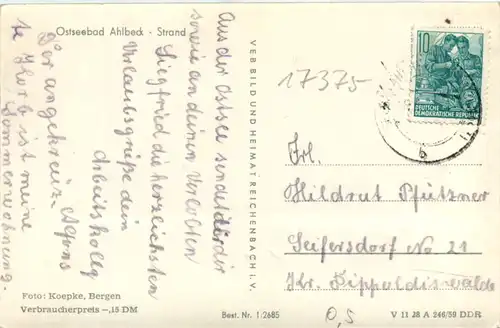 Ostseebad Ahlbeck - Strand
Aus der Ostsee sendet dir
sowie an deinen Verlobten
Siegfried die herzlichsten
Urlaubsgrüße dein
Arbeitskollg
Alfons
Der angekreuz-
te Ihorb ist meine
Sommerwohnung.
VEB BILD UND HEIMAT REICHENBACH I. V.
17375
10
DEUTSCHE
DEMOKRATISCHE REPUBLIK
b
Frl.
Hildrut Pfützner
Seifersdorf No 21
Kr. Dippoldiswalde
Foto: Koepke, Bergen
Verbraucherpreis -,15 DM
Best. Nr. 1/2685
0,5
V 11 28 A 246/59 DDR